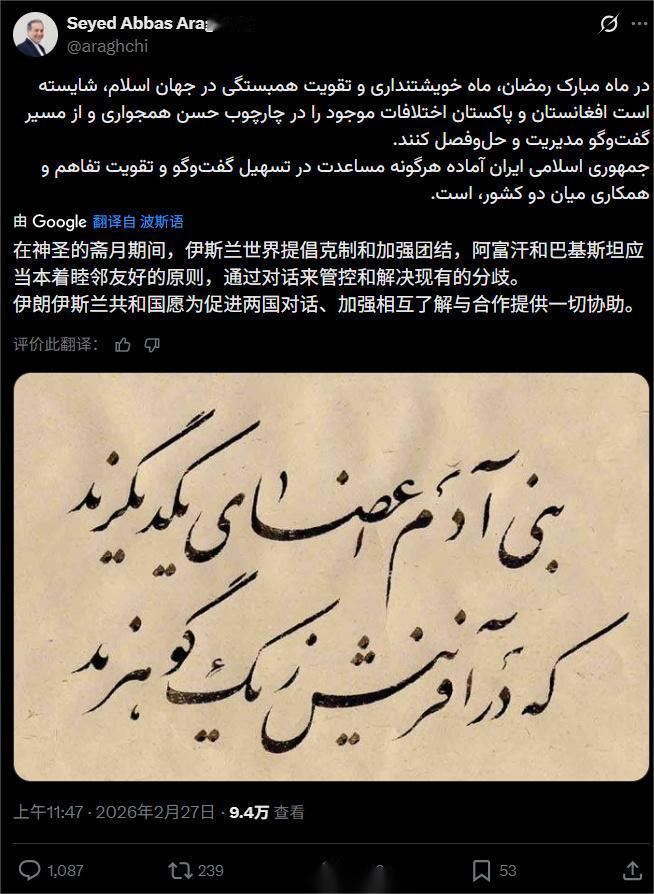 Seyed Abbas
@araghchi
در ماه مبارک رمضان، ماه خویشتنداری و تقویت همبستگی در جهان اسلام، شایسته
است افغانستان و پاکستان اختلافات موجود را در چارچوب حسن همجواری و از مسیر
گفت‌وگو مدیریت و حل‌وفصل کنند.
جمهوری اسلامی ایران آماده هرگونه مساعدت در تسهیل گفت‌وگو و تقویت تفاهم و
همکاری میان دو کشور، است.
由 Google 翻译自 波斯语
在神圣的斋月期间，伊斯兰世界提倡克制和加强团结，阿富汗和巴基斯坦应
当本着睦邻友好的原则，通过对话来管控和解决现有的分歧。
伊朗伊斯兰共和国愿为促进两国对话、加强相互了解与合作提供一切协助。
评价此翻译：
بنی آدم اعضای یکدیگرند
که در آفرینش ز یک گوهرند
上午11:47 · 2026年2月27日 · 9.4万 查看
1,087 239 53